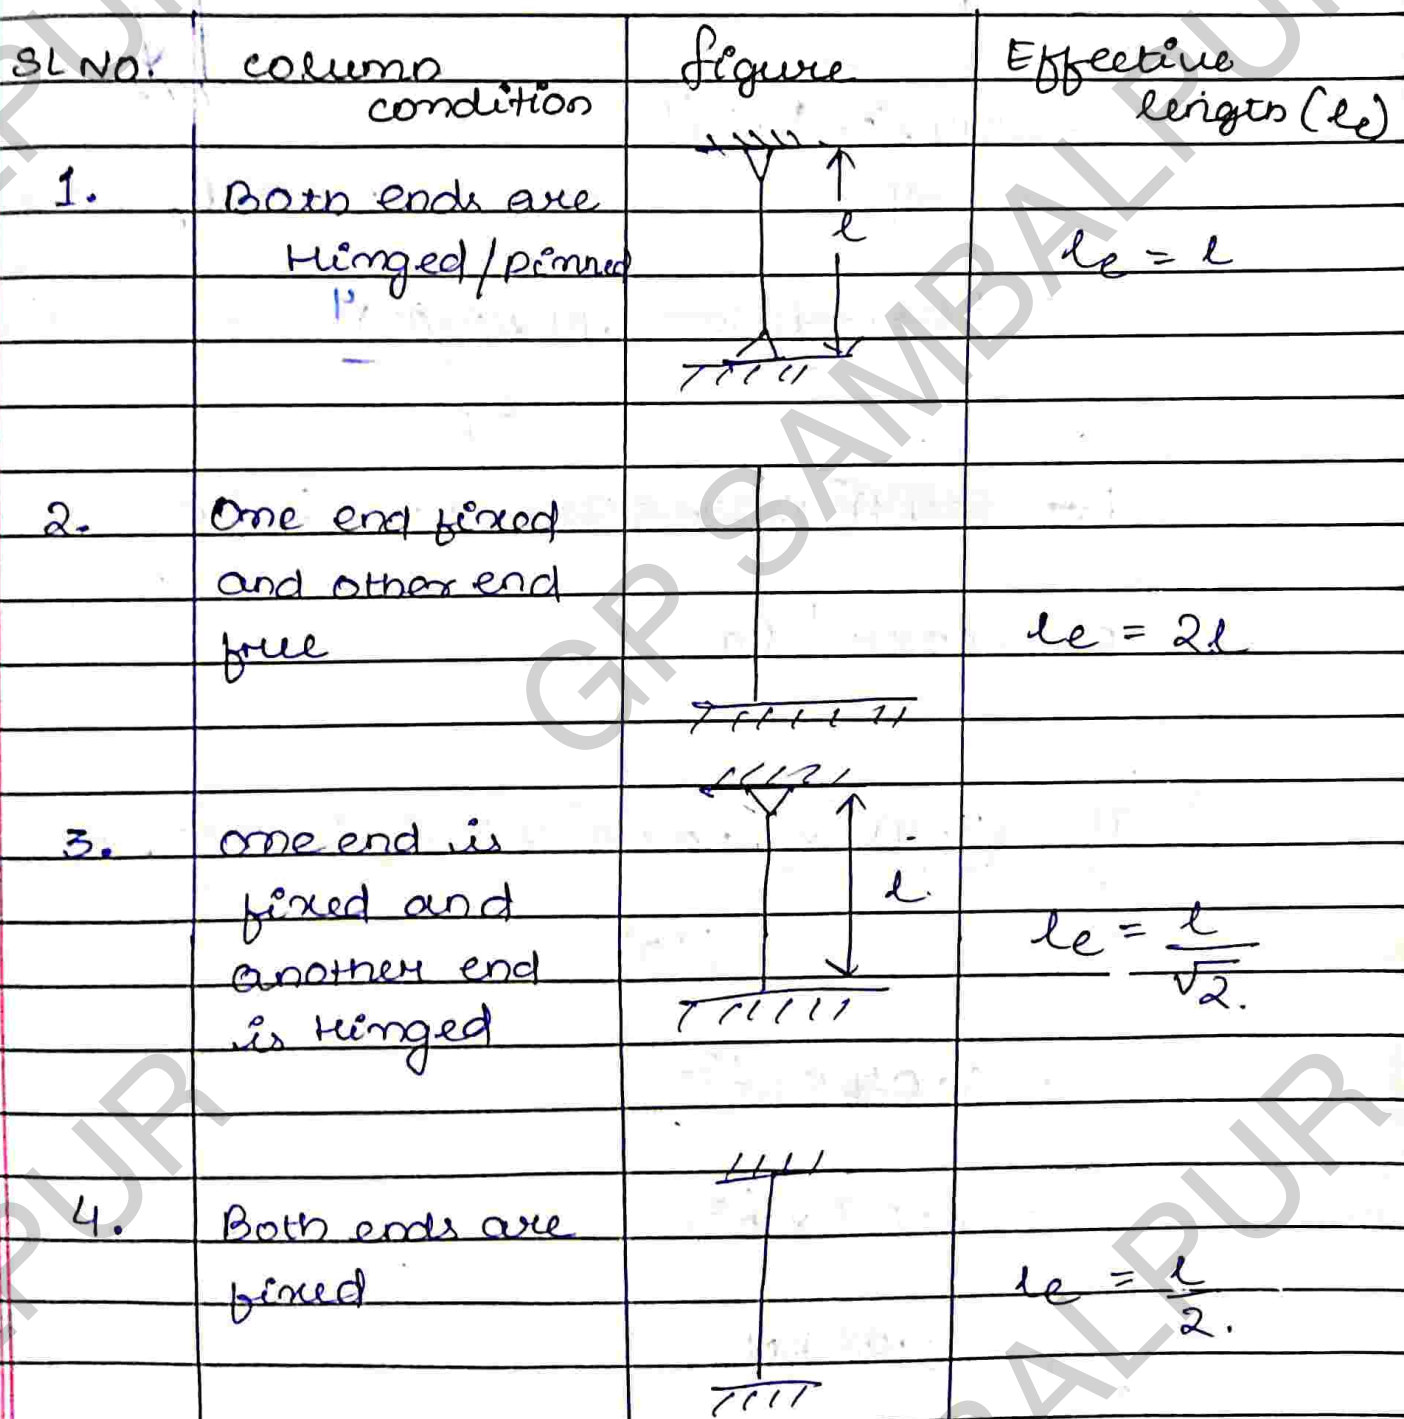 SL NO. column figure Effective
condition length (le)
1. Both ends are
Hinged/pinned
l
le = l
2. One end fixed
and other end
free
le = 2l
3. one end is
fixed and
another end
is Hinged
l.
le = l/√2.
4. Both ends are
fixed
le = l/2.
GP SAMBALPUR